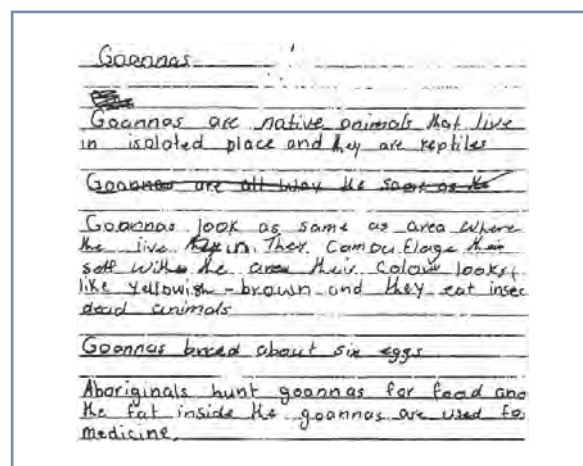 Goannas
Goannas are native animals that live
in isolated place and they are reptiles
Goannas are all way the same as the
Goannas look as same as area where
the live in. Ther Camouflage their
self withe the area their colour looks
like yellowish-brown and they eat insec
dead animals
Goannas breed about six eggs
Aboriginals hunt goannas for food and
the fat inside the goannas are used fo
medicine.